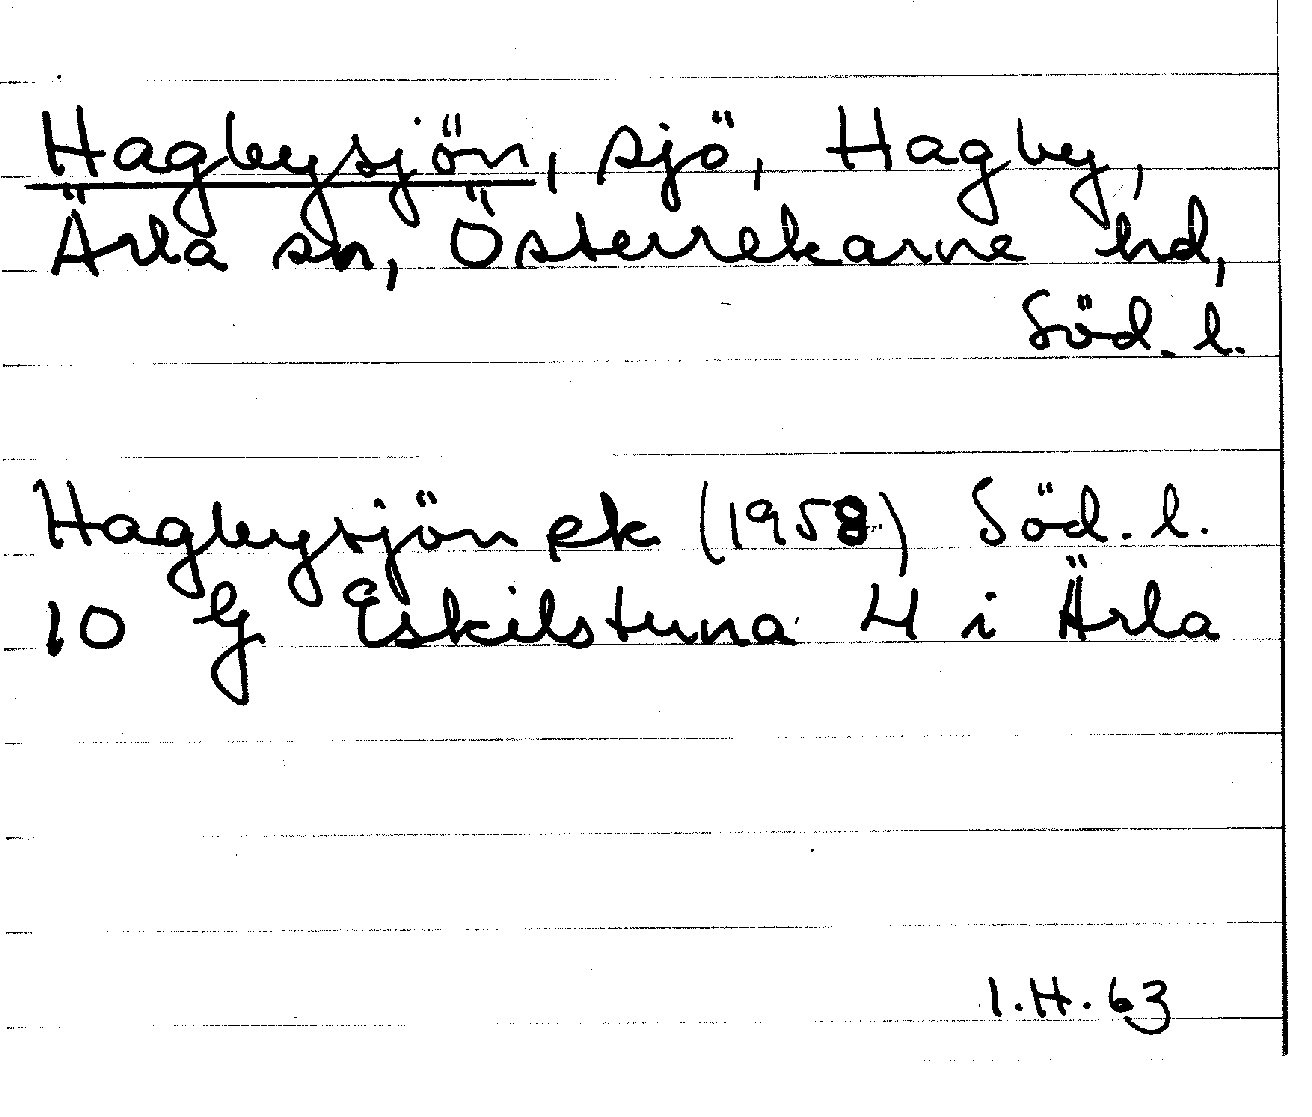 Hagbysjön, sjö, Hagby,
Ärla sn, Österrekarne hd,
Söd. l.
Hagbysjön ek (1958) Söd. l.
10 G Eskilstuna 4 i Ärla
I.H. 63